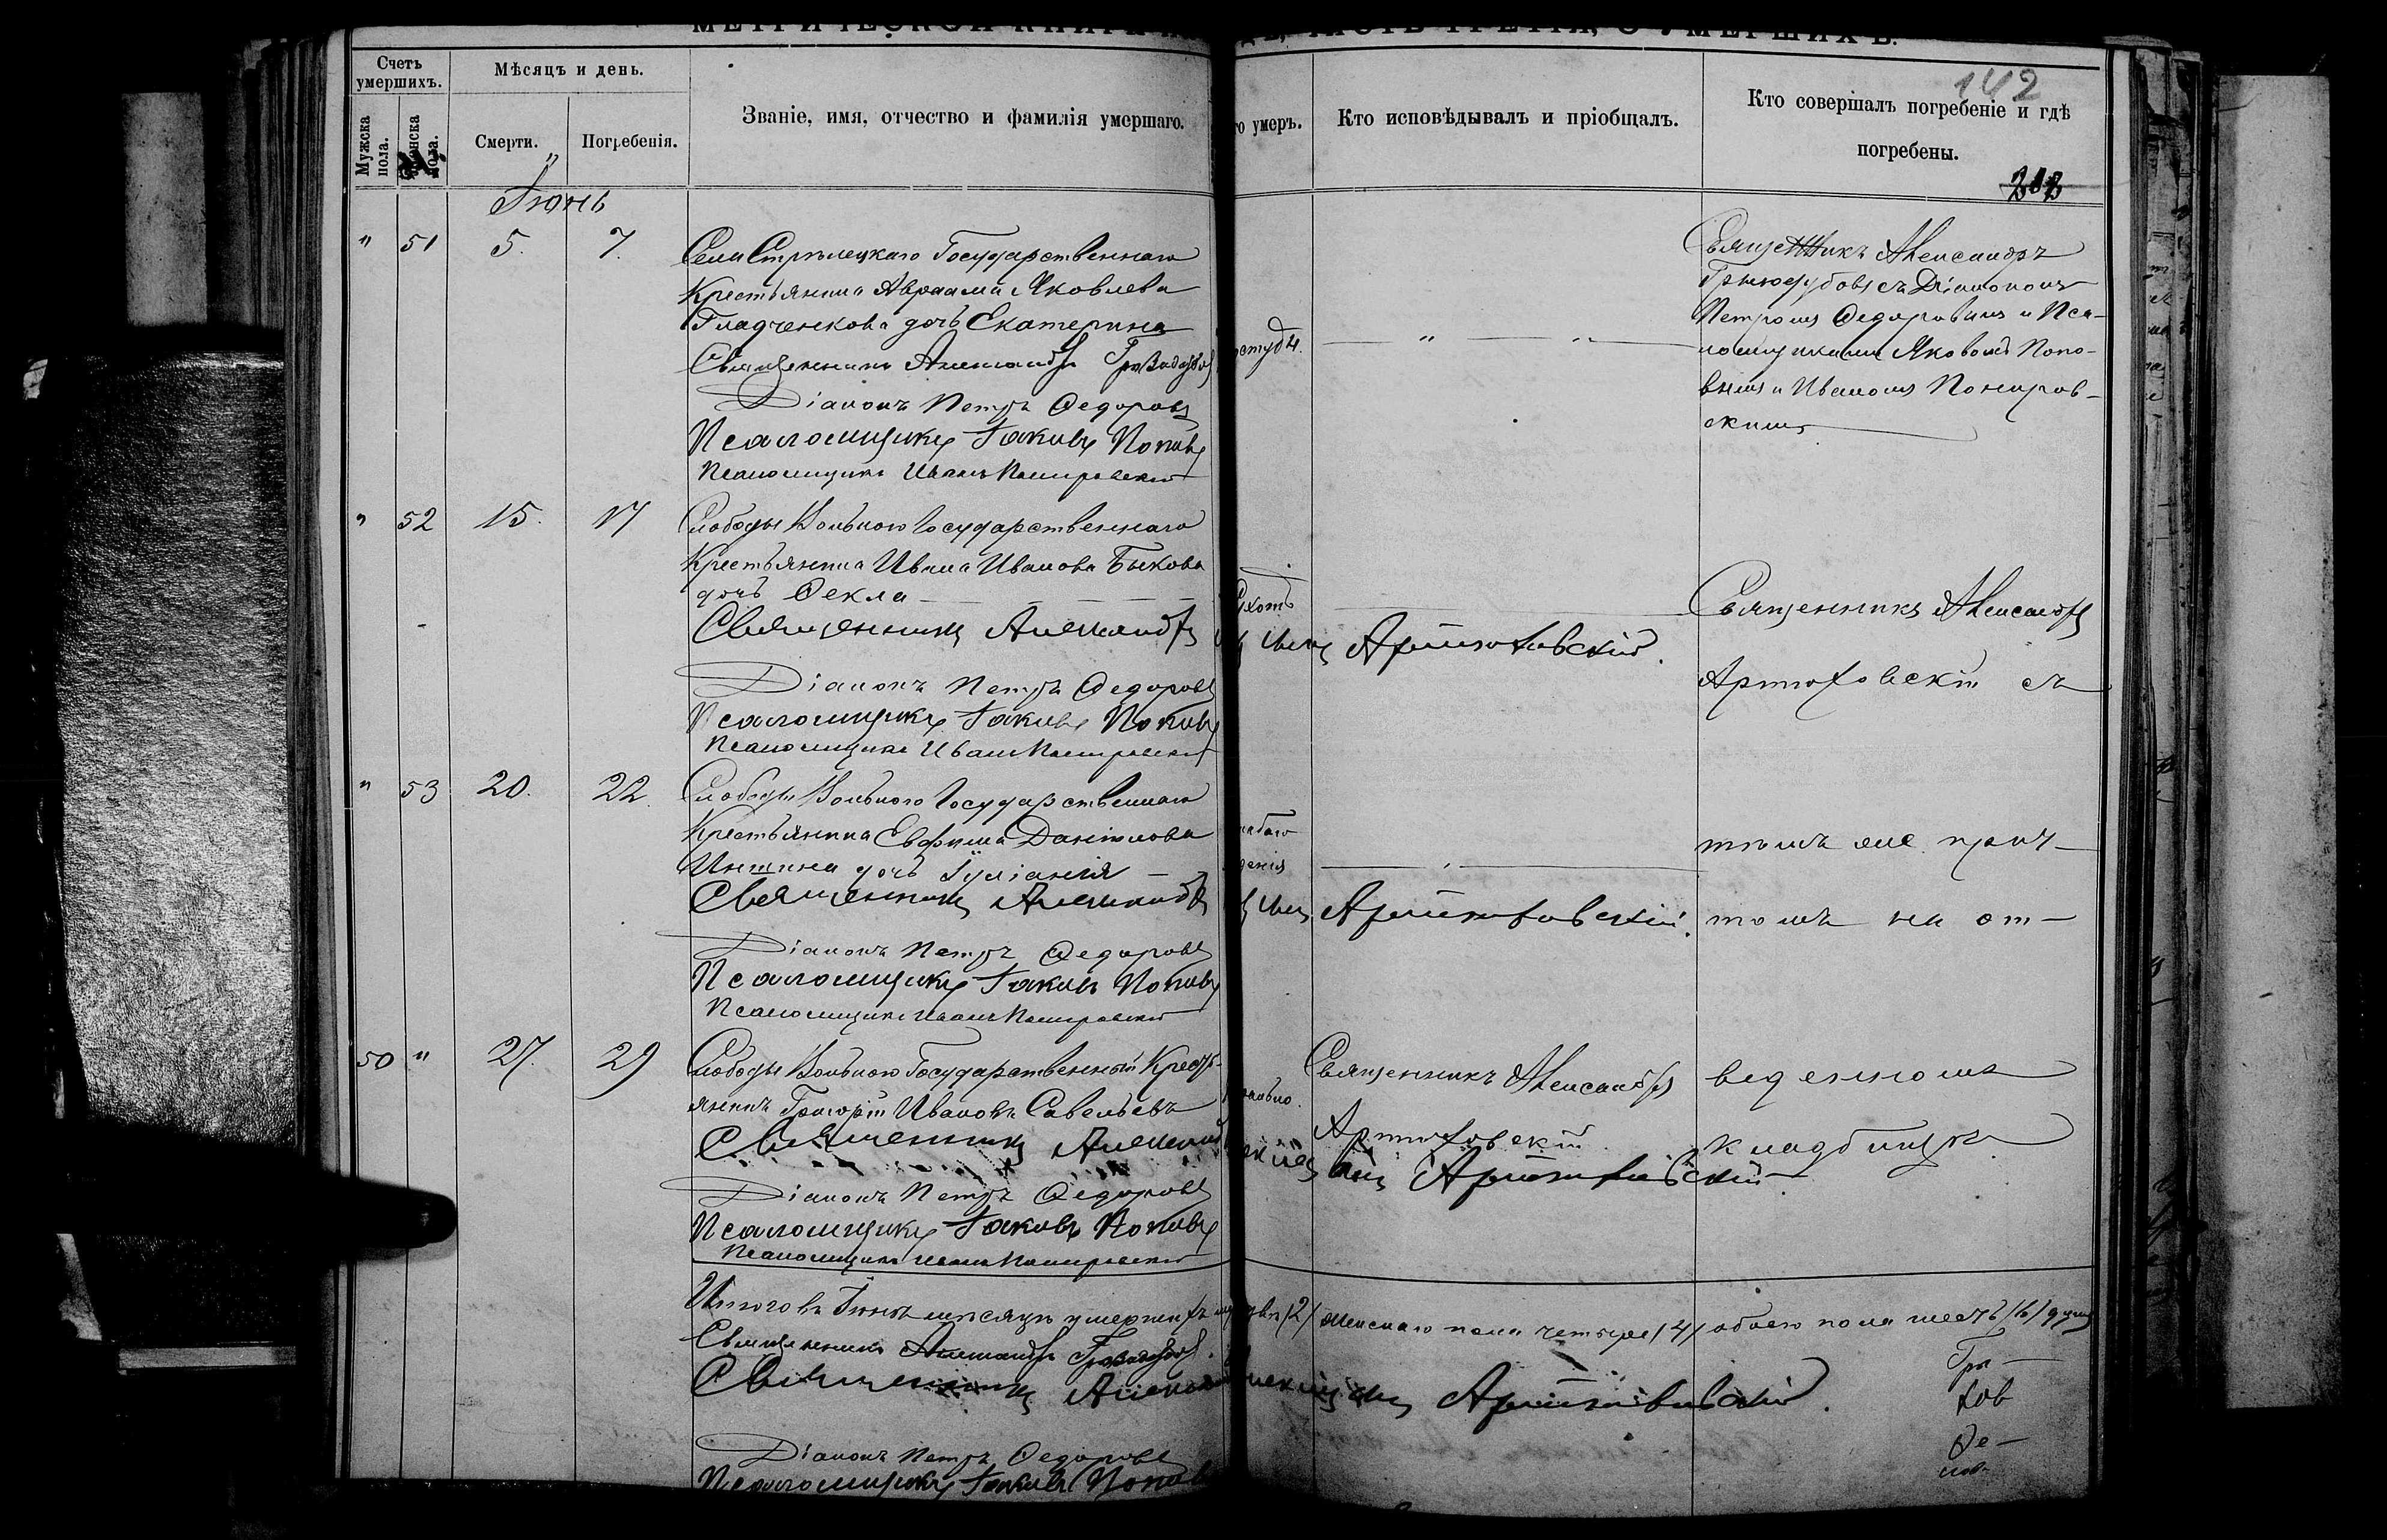 МЕТРИЧЕСКОЙ КНИГИ
ЧАСТЬ ТРЕТІЯ, О УМЕРШИХЪ.
142
Счетъ умершихъ.
Мѣсяцъ и день.
Мужска пола.
Женска пола.
Смерти.
Погребенія.
Званіе, имя, отчество и фамилія умершаго.
го умеръ.
Кто исповѣдывалъ и пріобщалъ.
Кто совершалъ погребеніе и гдѣ
погребены.
Іюнь
" 51 5. 7.
Села Стрѣлецкаго Государственнаго
Крестьянина Авраама Яковлева
Гладченкова дочь Екатерина
Священникъ Александръ
Діаконъ Петръ Ѳедоровъ
Псаломщикъ Іаковъ Поповъ
Псаломщикъ Иванъ
остуды.
Священникъ Александръ
съ Діакономъ
Петромъ Ѳедоровымъ и Пса-
ломщиками Яковомъ Попо-
вымъ и Иваномъ
скимъ
" 52 15. 17
Слободы Вольного Государственнаго
Крестьянина Ивана Иванова Быкова
дочь Ѳекла
Священникъ Александръ Артюховскій.
Діаконъ Петръ Ѳедоровъ
Псаломщикъ Іаковъ Поповъ
Псаломщикъ Иванъ
Священникъ Александръ
Артюховскій съ
" 53 20. 22.
Слободы Вольного Государственнаго
Крестьянина Евфима Даніилова
дочь Іуліанія
Священникъ Александръ Артюховскій.
Діаконъ Петръ Ѳедоровъ
Псаломщикъ Іаковъ Поповъ
Псаломщикъ Иванъ
тѣмъ же прич-
томъ на от-
50 " 27. 29
Слободы Вольного Государственный Кресть-
янинъ Григорій Ивановъ Савельевъ
Священникъ Александръ Артюховскій
Діаконъ Петръ Ѳедоровъ
Псаломщикъ Іаковъ Поповъ
Псаломщикъ Иванъ
Священникъ Александръ
Артюховскій
веденномъ
кладбищѣ
Итого въ Іюнѣ мѣсяцѣ умершихъ /2/ женскаго пола четыре /4/ обоего пола шесть /6/ душъ
Священникъ Александръ
Священникъ Артюховскій.
Діаконъ Петръ Ѳедоровъ
Псаломщикъ Іаковъ Поповъ